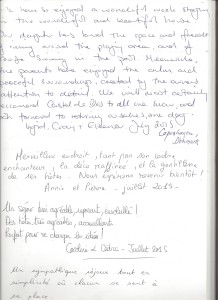 We have so enjoyed a wonderful week staying
in this wonderful and beautiful house!
Our daughter has loved the space and freedom
of running around the playing area, and of
swimming in the pool. Meanwhile,
the parents have enjoyed the calm and
peaceful surroundings, created by the owners
attention to detail. We will most certainly
recommend Castel de to all we know, and
look forward to returning ourselves, one day
July 2015
Copenhagen,
Denmark
Merveilleux endroit, tant par son cadre
enchanteur, la déco raffinée, et la gentillesse
de ses hôtes. Nous espérons revenir bientôt!
Annie et Pierre - juillet 2015 -
Un séjour très agréable, reposant,
Des hôtes très agréables, accueillants
Parfait pour se changer les idées!
Cédric - Juillet 2015
Un sympathique séjour tout en
simplicité où chacun se sent à
sa place.